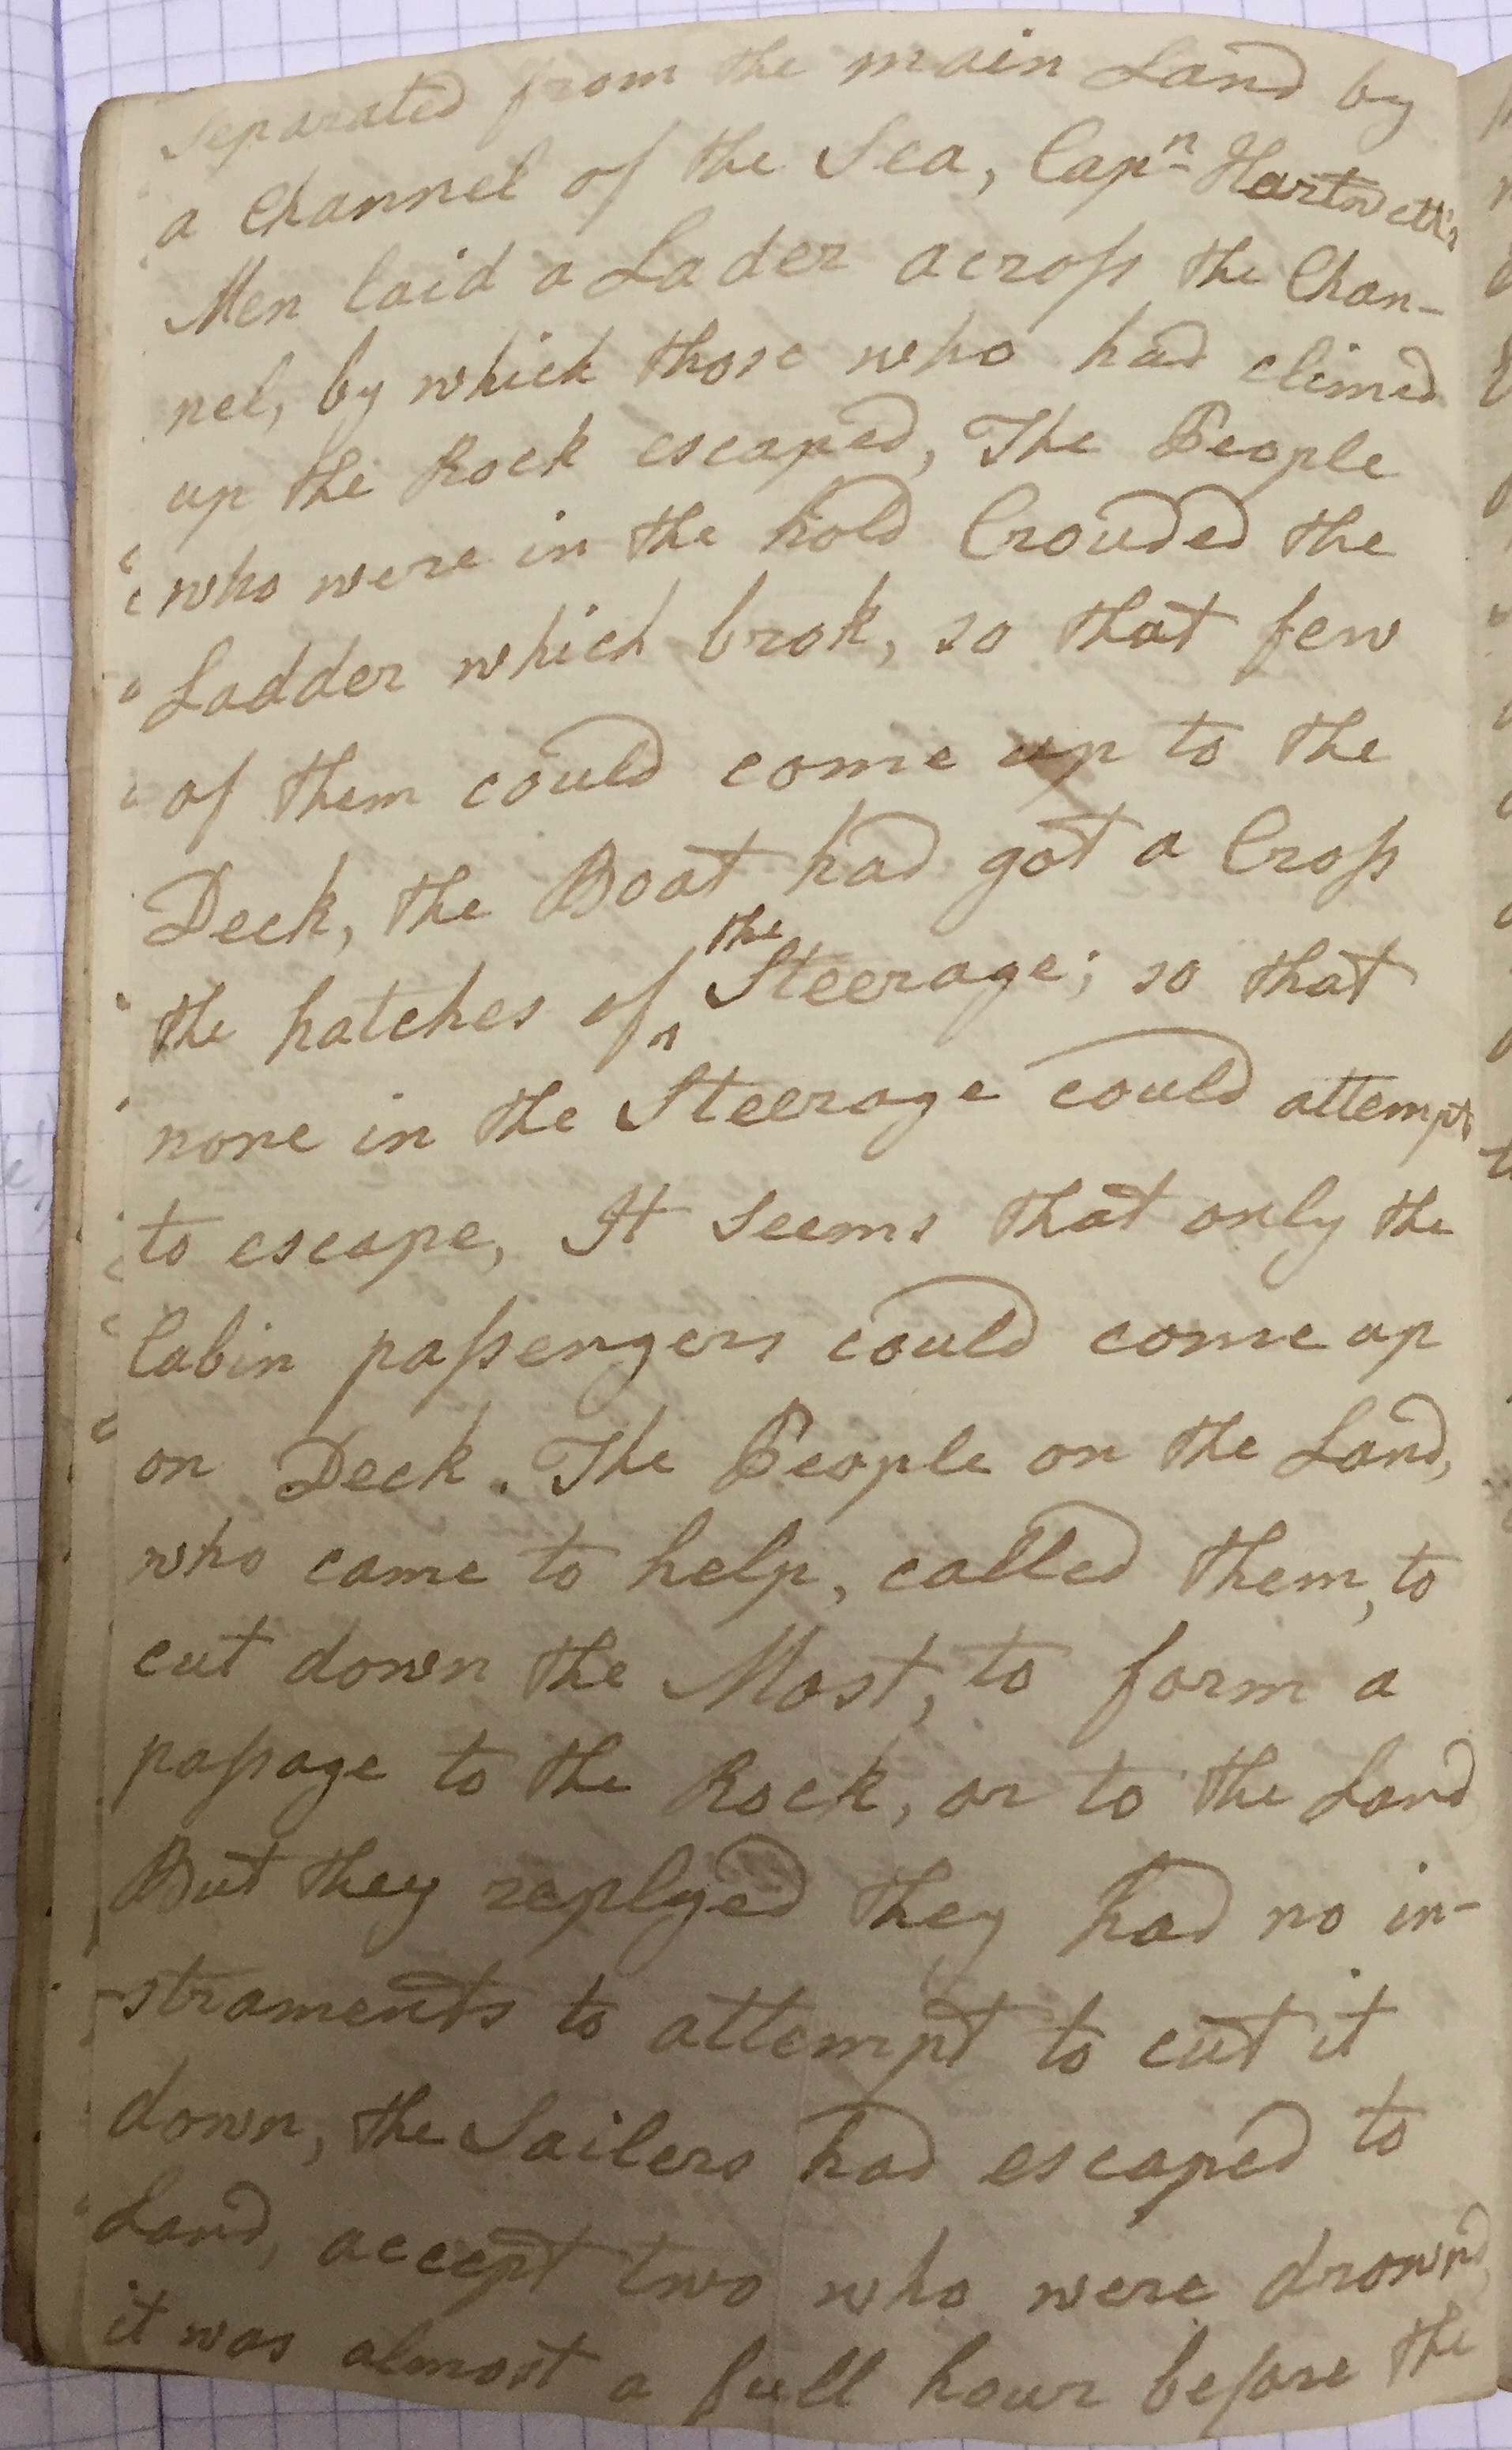 separated from the main Land by
a Channel of the Sea, Capn Hartwell's
Men laid a Lader across the Chan-
nel, by which those who had climed
up the Rock escaped, The People
who were in the hold Crouded the
Ladder which brok, so that few
of them could come up to the
Deck, the Boat had got a Cross
the hatches of the Steerage; so that
none in the Steerage could attempt
to escape, It seems that only the
Cabin passengers could come up
on Deck. The People on the Land,
who came to help, called them, to
cut down the Mast, to form a
passage to the Rock, or to the Land
But they replyed they had no in-
-struments to attempt to cut it
down, the Sailers had escaped to
Land, accept two who were drownd
it was almost a full hour before the